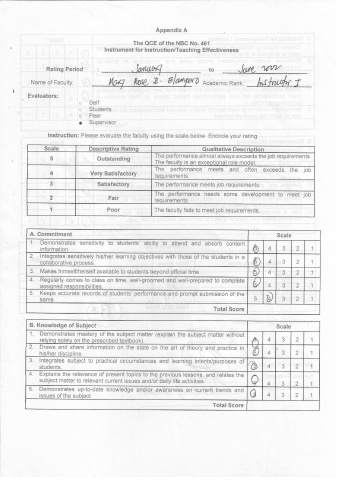 Appendix A
The QCE of the NBC No. 461
Instrument for Instruction/Teaching Effectiveness
Rating Period: January to June 2022
Name of Faculty: Mary Rose B. Academic Rank: Instructor I
Evaluators:
Self
Students
Peer
Supervisor
Instruction: Please evaluate the faculty using the scale below. Encircle your rating.
Scale Descriptive Rating Qualitative Description
5 Outstanding The performance almost always exceeds the job requirements.
The faculty is an exceptional role model.
4 Very Satisfactory The performance meets and often exceeds the job
requirements.
3 Satisfactory The performance meets job requirements.
2 Fair The performance needs some development to meet job
requirements.
1 Poor The faculty fails to meet job requirements.
A. Commitment Scale
1. Demonstrates sensitivity to students' ability to attend and absorb content
information. 5 4 3 2 1
2. Integrates sensitively his/her learning objectives with those of the students in a
collaborative process. 5 4 3 2 1
3. Makes himself/herself available to students beyond official time. 5 4 3 2 1
4. Regularly comes to class on time, well-groomed and well-prepared to complete
assigned responsibilities. 5 4 3 2 1
5. Keeps accurate records of students' performance and prompt submission of the
same. 5 4 3 2 1
Total Score
B. Knowledge of Subject Scale
1. Demonstrates mastery of the subject matter (explain the subject matter without
relying solely on the prescribed textbook). 5 4 3 2 1
2. Draws and share information on the state on the art of theory and practice in
his/her discipline. 5 4 3 2 1
3. Integrates subject to practical circumstances and learning intents/purposes of
students. 5 4 3 2 1
4. Explains the relevance of present topics to the previous lessons, and relates the
subject matter to relevant current issues and/or daily life activities. 5 4 3 2 1
5. Demonstrates up-to-date knowledge and/or awareness on current trends and
issues of the subject. 5 4 3 2 1
Total Score